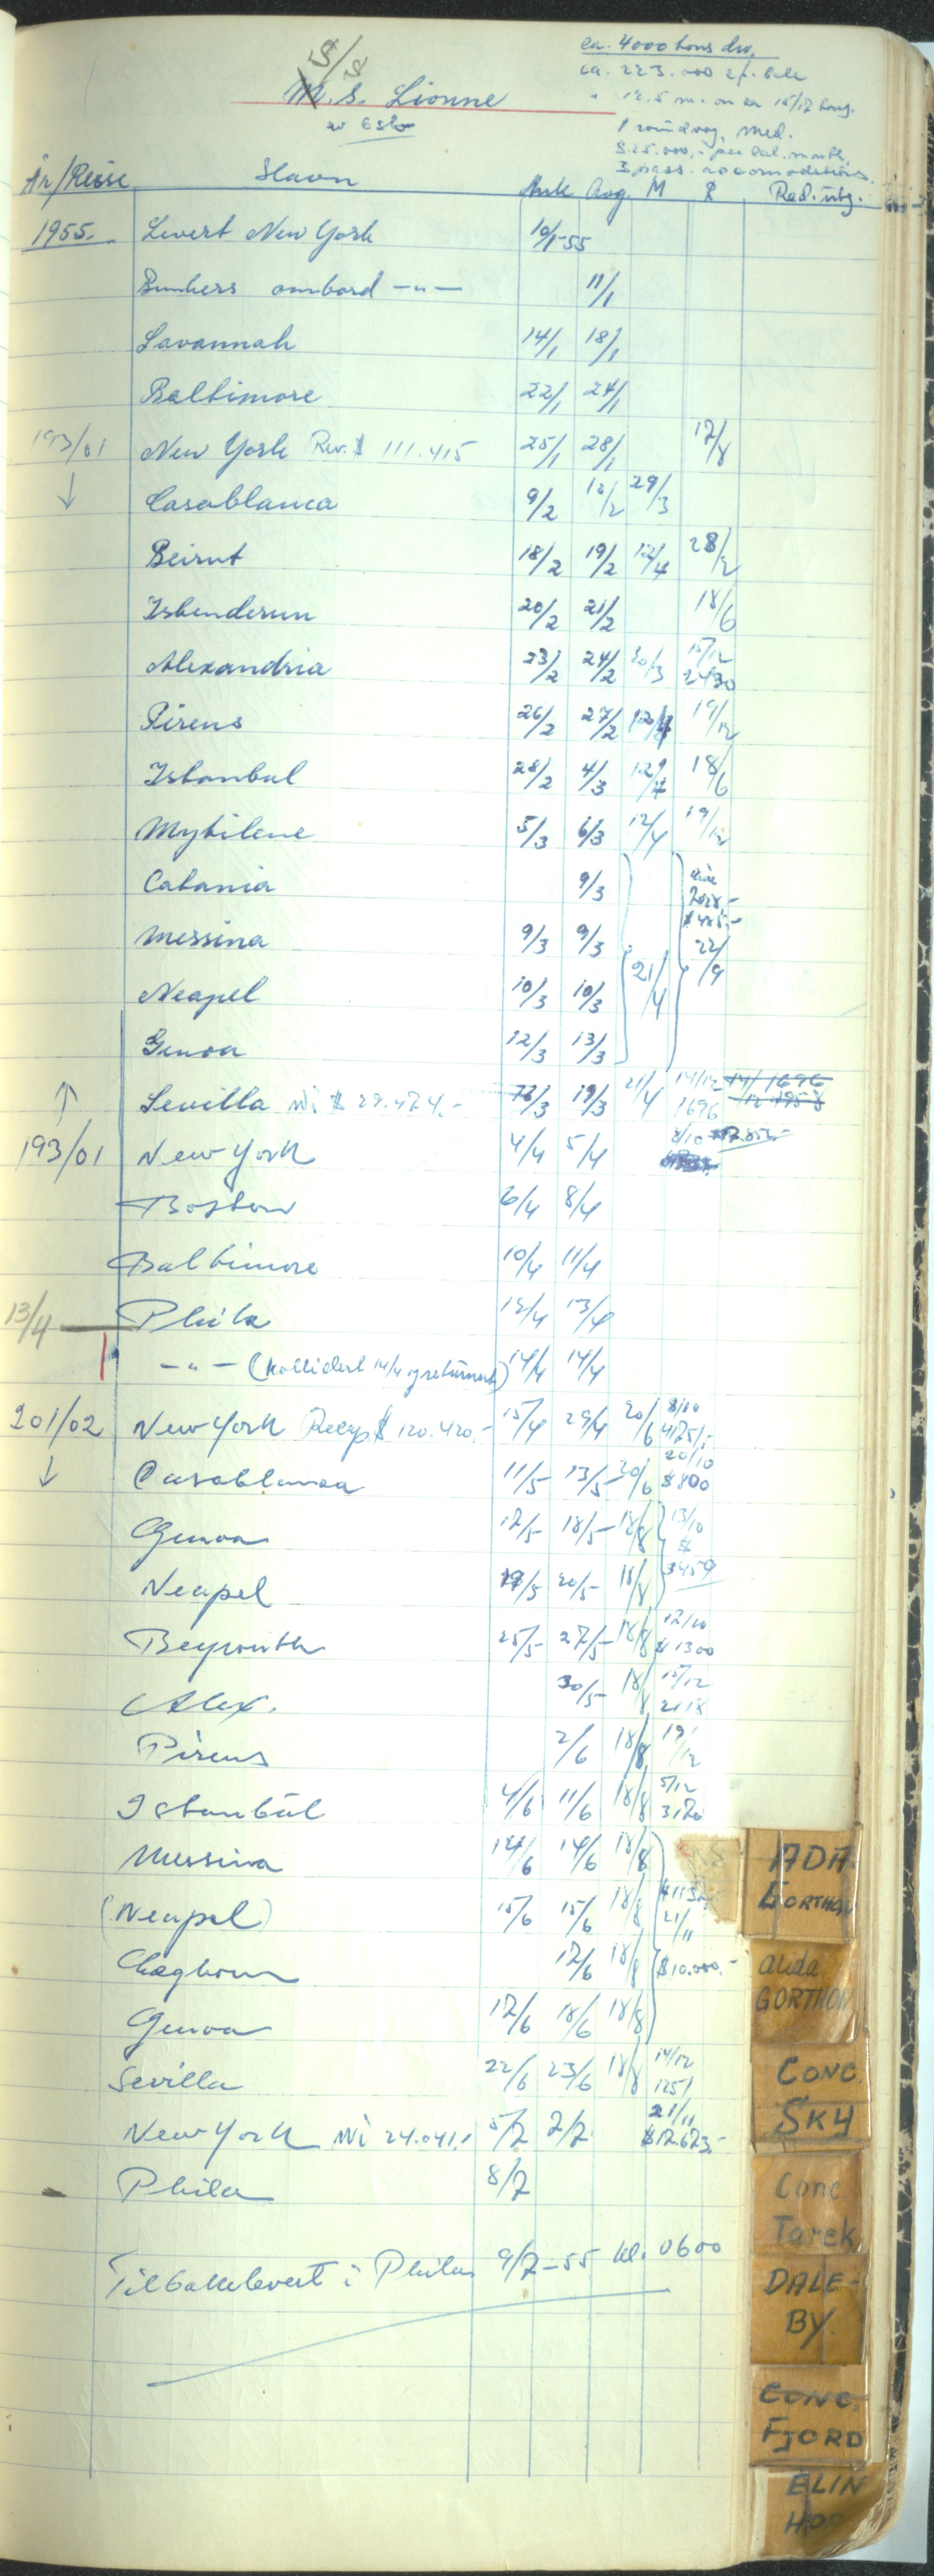 S/S
M.S. Lionne
av Oslo
ca. 4000 tons dw.
ca. 223.000 cf. bale
" 12.5 m. on ca 15/17 tons.
1 roundvoy. Med.
$25.000,- per cal. month.
3 pass. accomodations.
År/Reise Havn Ank Avg. M R Red. utg.
1955. Levert New York 10/1-55
Bunkers ombord -"- 11/1
Savannah 14/1 18/1
Baltimore 22/1 24/1
193/01 New York Rev. $ 111.415 25/1 28/1 17/8
↓ Casablanca 9/2 10/2 29/3
Beirut 18/2 19/2 12/4 28/2
Iskenderun 20/2 21/2 18/6
Alexandria 23/2 24/2 30/3 15/12 2430
Pireus 26/2 27/2 19/12
Istanbul 28/2 4/3 18/6
Mytilene 5/3 6/3 12/4 19/12
Catania 9/3
2028,-
$485,-
Messina 9/3 9/3 22/9
Neapel 10/3 10/3 21/4
Genoa 12/3 13/3
↑ Sevilla Ni $ 29.474.- 19/3 21/4 14/12 1696
193/01 New York 4/4 5/4 8/10
Boston 6/4 8/4
Baltimore 10/4 11/4
13/4 Phila 12/4 13/4
-"- (kollidert 14/4 og returnert) 14/4 14/4
201/02 New York Recap $ 120.420.- 15/4 29/4 20/6 8/10 4175,-
↓ Casablanca 11/5 13/5 20/6 20/10 $800
Genoa 17/5 18/5 18/8 13/10 $
Neapel 19/5 20/5 18/8 3459
Beyrouth 25/5 27/5 18/8 12/10 $1300
Alex. 30/5 18/8 15/12 2118
Pireus 2/6 18/8 19/12
Istanbul 4/6 11/6 18/8 5/12 3170
Messina 14/6 14/6 18/8
(Neapel) 15/6 15/6 18/8 21/11
17/6 18/8 $10.000.-
Genoa 17/6 18/6 18/8
Sevilla 22/6 23/6 18/8 14/12 1251
New York Ni 24.041.- 5/7 7/7 21/11 $12.673.-
Phila 8/7
Tilbakelevert i Phila 9/7-55 kl. 0600
ADA
GORTHON
Alida
GORTHON
CONC.
SKY
Conc.
Tarek
DALE-
BY.
CONC.
FJORD
ELIN